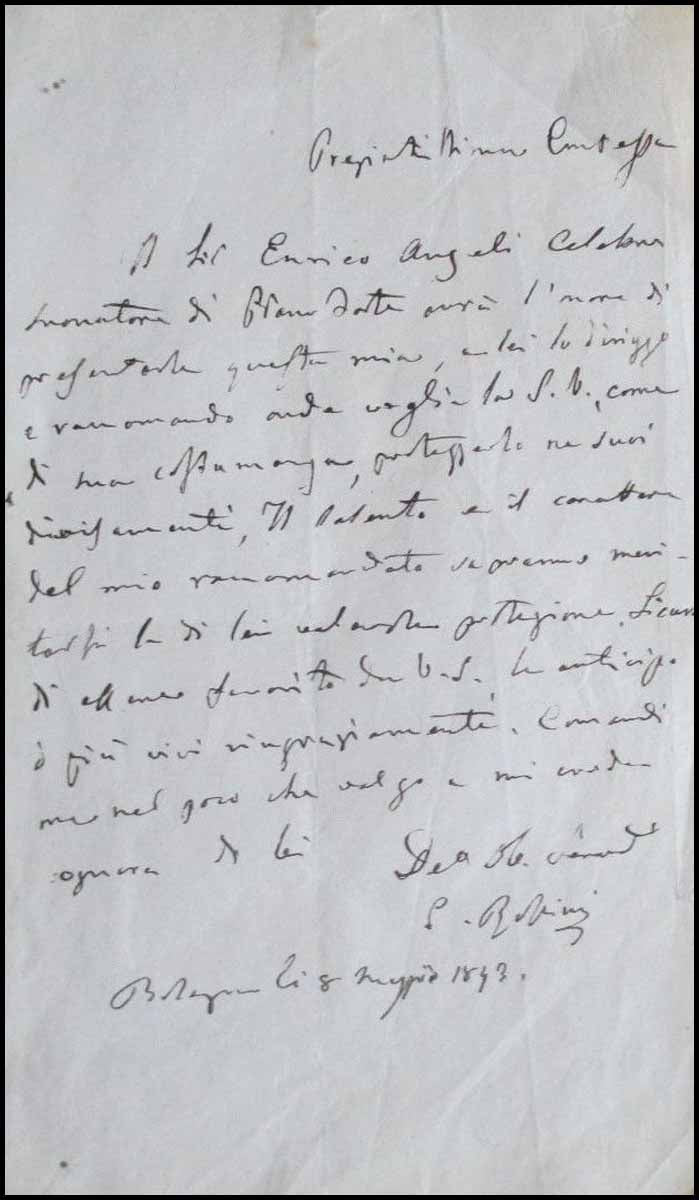 Pregiatissima Contessa
Il Sig Enrico Angeli Celebre
suonatore di Piano Forte avrà l'onore di
presentarle questa mia, a lei lo dirigo
e raccomando onde voglia la S. V., come
di sua costumanza, proteggerlo ne suoi
divisamenti, Il talento e il carattere
del mio raccomandato sapranno meri-
tarsi la di lei valevole protezione. Sicuro
di essere favorito da V. S. le anticipo
i più vivi ringraziamenti. Comandi
me nel poco che valgo e mi creda
ognora di lei
G. Rossini
Bologna li 8 Maggio 1843.